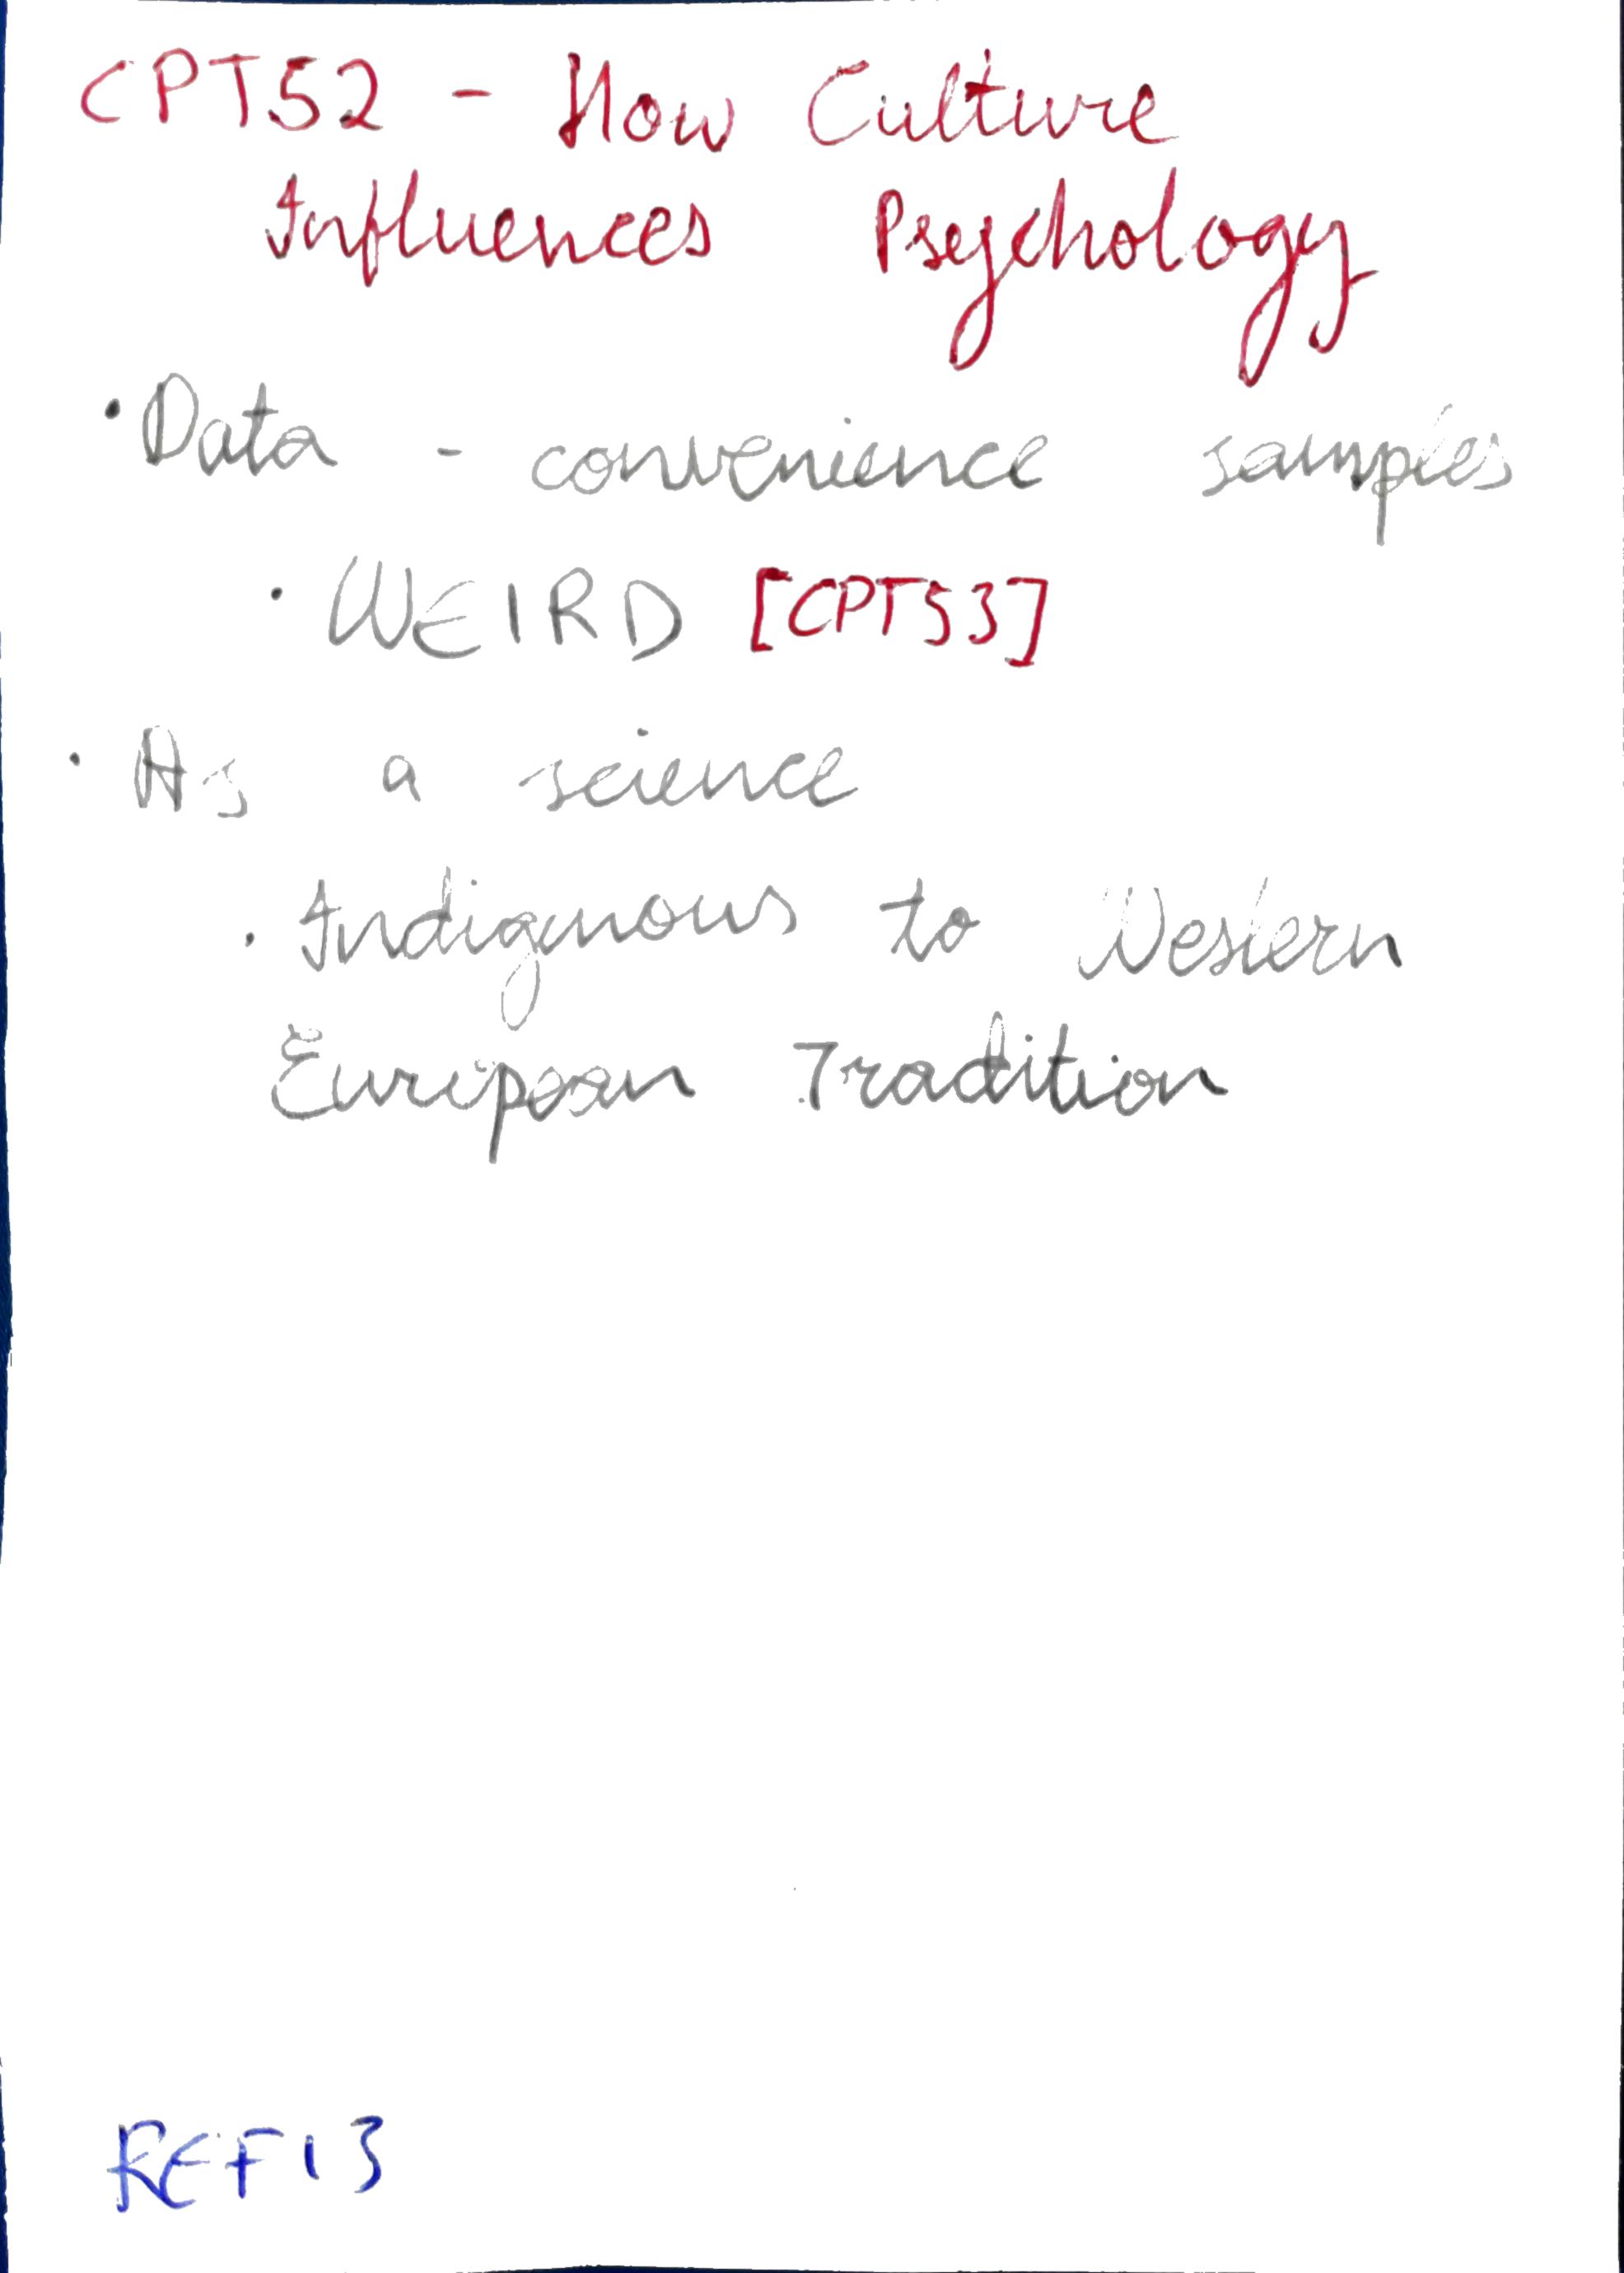 CPT52 - How Culture
Influences Psychology
• Data - convenience samples
• WEIRD [CPT53]
• As a science
• Indigenous to Western
European Tradition
REF13